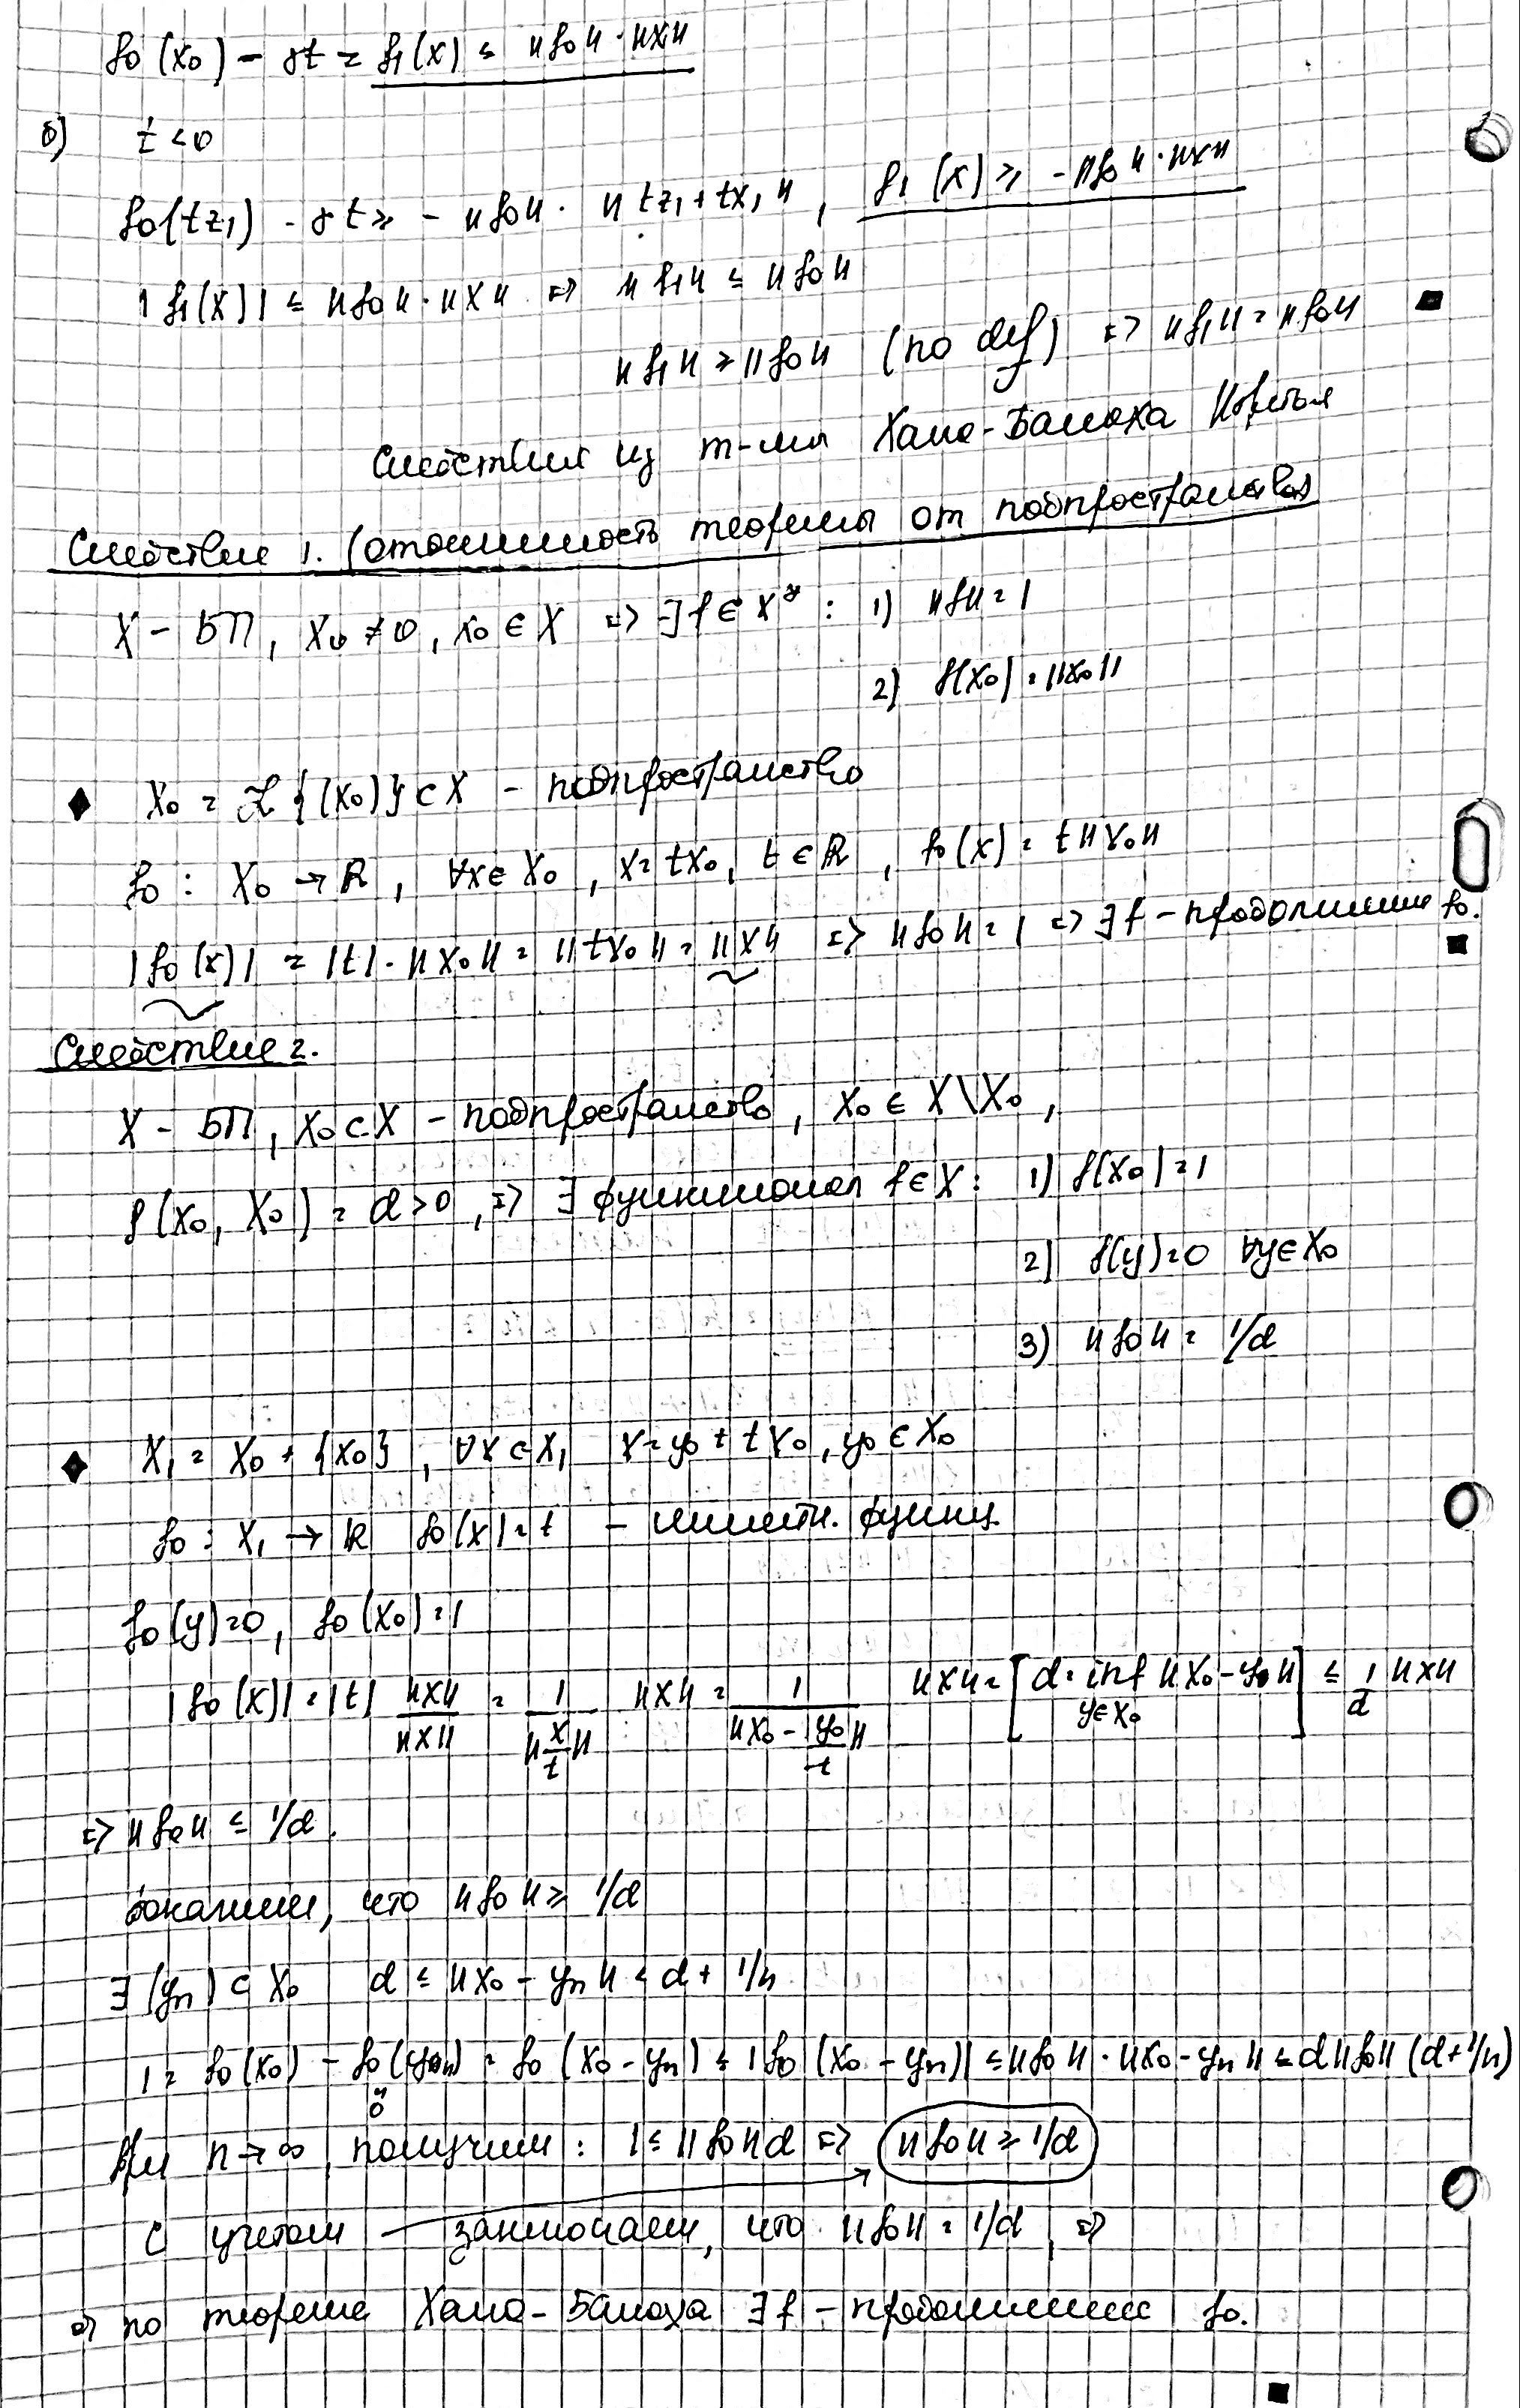 f₀(x₀) - γt = f₁(x) ≤ ‖f₀‖·‖x‖
б) t < 0
f₀(tz₁) - γt ≥ - ‖f₀‖ · ‖tz₁ + tx₁‖, f₁(x) ≥ -‖f₀‖·‖x‖
|f₁(x)| ≤ ‖f₀‖·‖x‖ ⇒ ‖f₁‖ ≤ ‖f₀‖
‖f₁‖ ≥ ‖f₀‖ (по def) ⇒ ‖f₁‖ = ‖f₀‖ ■
Следствия из т-мы Хана-Банаха
Следствие 1. (отделимость от подпространства)
X - БП, x₀ ≠ 0, x₀ ∈ X ⇒ ∃ f ∈ X* : 1) ‖f‖ = 1
2) f(x₀) = ‖x₀‖
♦ X₀ = ℒ{(x₀)} ⊂ X - подпространство
f₀ : X₀ → ℝ, ∀x ∈ X₀, x = tx₀, t ∈ ℝ, f₀(x) = t‖x₀‖
|f₀(x)| = |t|·‖x₀‖ = ‖tx₀‖ = ‖x‖ ⇒ ‖f₀‖ = 1 ⇒ ∃ f - продолжение f₀. ■
Следствие 2.
X - БП, X₀ ⊂ X - подпространство, x₀ ∈ X \ X₀,
ρ(x₀, X₀) = d > 0, ⇒ ∃ функционал f ∈ X : 1) f(x₀) = 1
2) f(y) = 0 ∀y ∈ X₀
3) ‖f₀‖ = 1/d
♦ X₁ = X₀ + {x₀}, ∀x ∈ X₁ x = y₀ + tx₀, y₀ ∈ X₀
f₀ : X₁ → ℝ f₀(x) = t - линейн. функц.
f₀(y) = 0, f₀(x₀) = 1
|f₀(x)| = |t| ‖x‖/‖x‖ = 1/‖x/t‖ ‖x‖ = 1/‖x₀ - y₀/-t‖ ‖x‖ = [d = inf_{y∈X₀} ‖x₀ - y₀‖] ≤ 1/d ‖x‖
⇒ ‖f₀‖ ≤ 1/d.
Докажем, что ‖f₀‖ ≥ 1/d
∃ (yₙ) ⊂ X₀ d ≤ ‖x₀ - yₙ‖ < d + 1/n
1 = f₀(x₀) - f₀(yₙ) = f₀(x₀ - yₙ) ≤ |f₀(x₀ - yₙ)| ≤ ‖f₀‖·‖x₀ - yₙ‖ ≤ d‖f₀‖(d + 1/n)
0
При n → ∞ получим: 1 ≤ ‖f₀‖d ⇒ ‖f₀‖ ≥ 1/d
С учетом заключаем, что ‖f₀‖ = 1/d, ⇒
⇒ по теореме Хана-Банаха ∃ f - продолжение f₀.
■